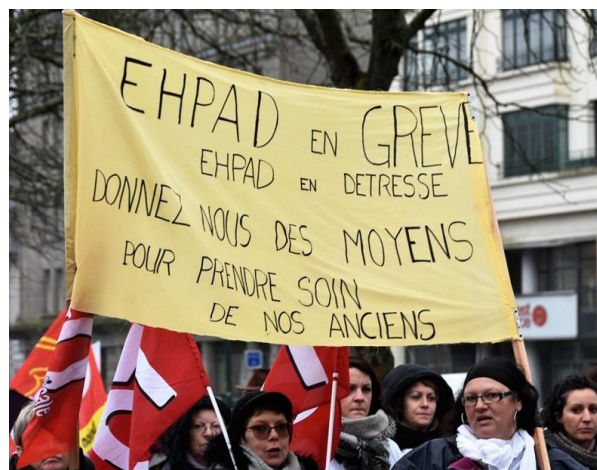 EHPAD EN GREVE
EHPAD EN DETRESSE
DONNEZ NOUS DES MOYENS
POUR PRENDRE SOIN
DE NOS ANCIENS